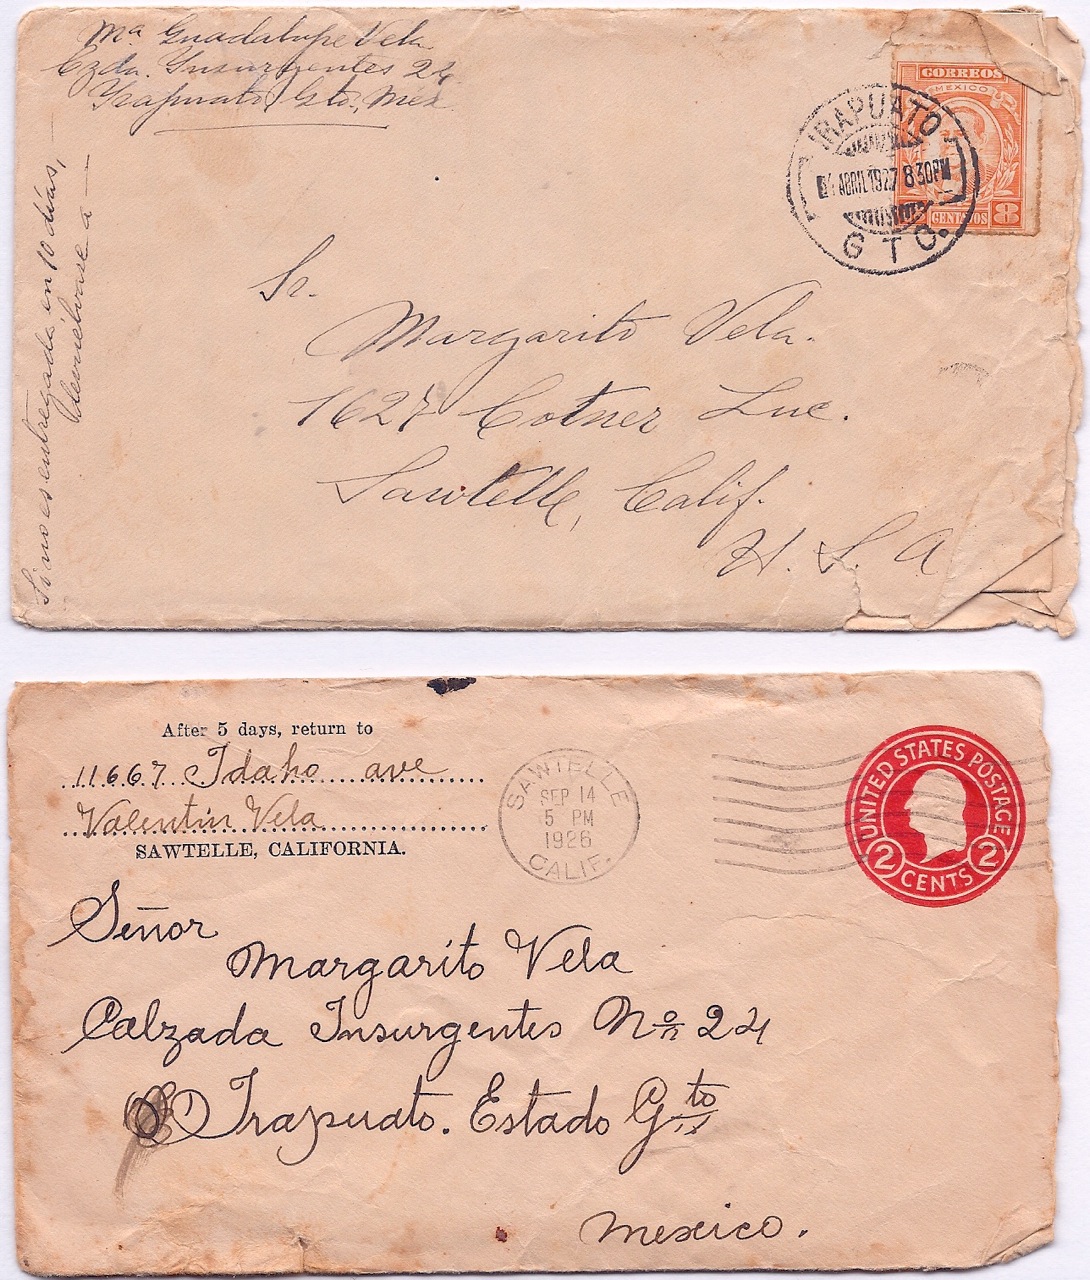 Mª Guadalupe Vela
Czda. Insurgentes 24
Irapuato, Gto., Mex
Si no es entregada en 10 días,
devuélvase a
CORREOS
MEXICO
CENTAVOS 8
IRAPUATO
ABRIL 1927 8 30PM
GTO.
Sr.
Margarito Vela.
1627 Cotner Ave.
Sawtelle, Calif.
U. S. A
After 5 days, return to
11667 Idaho ave
Valentin Vela
SAWTELLE, CALIFORNIA.
SAWTELLE
SEP 14
5 PM
1926
CALIF.
UNITED STATES POSTAGE
2 CENTS 2
Señor
Margarito Vela
Calzada Insurgentes Nº 24
Irapuato. Estado Gto
Mexico.